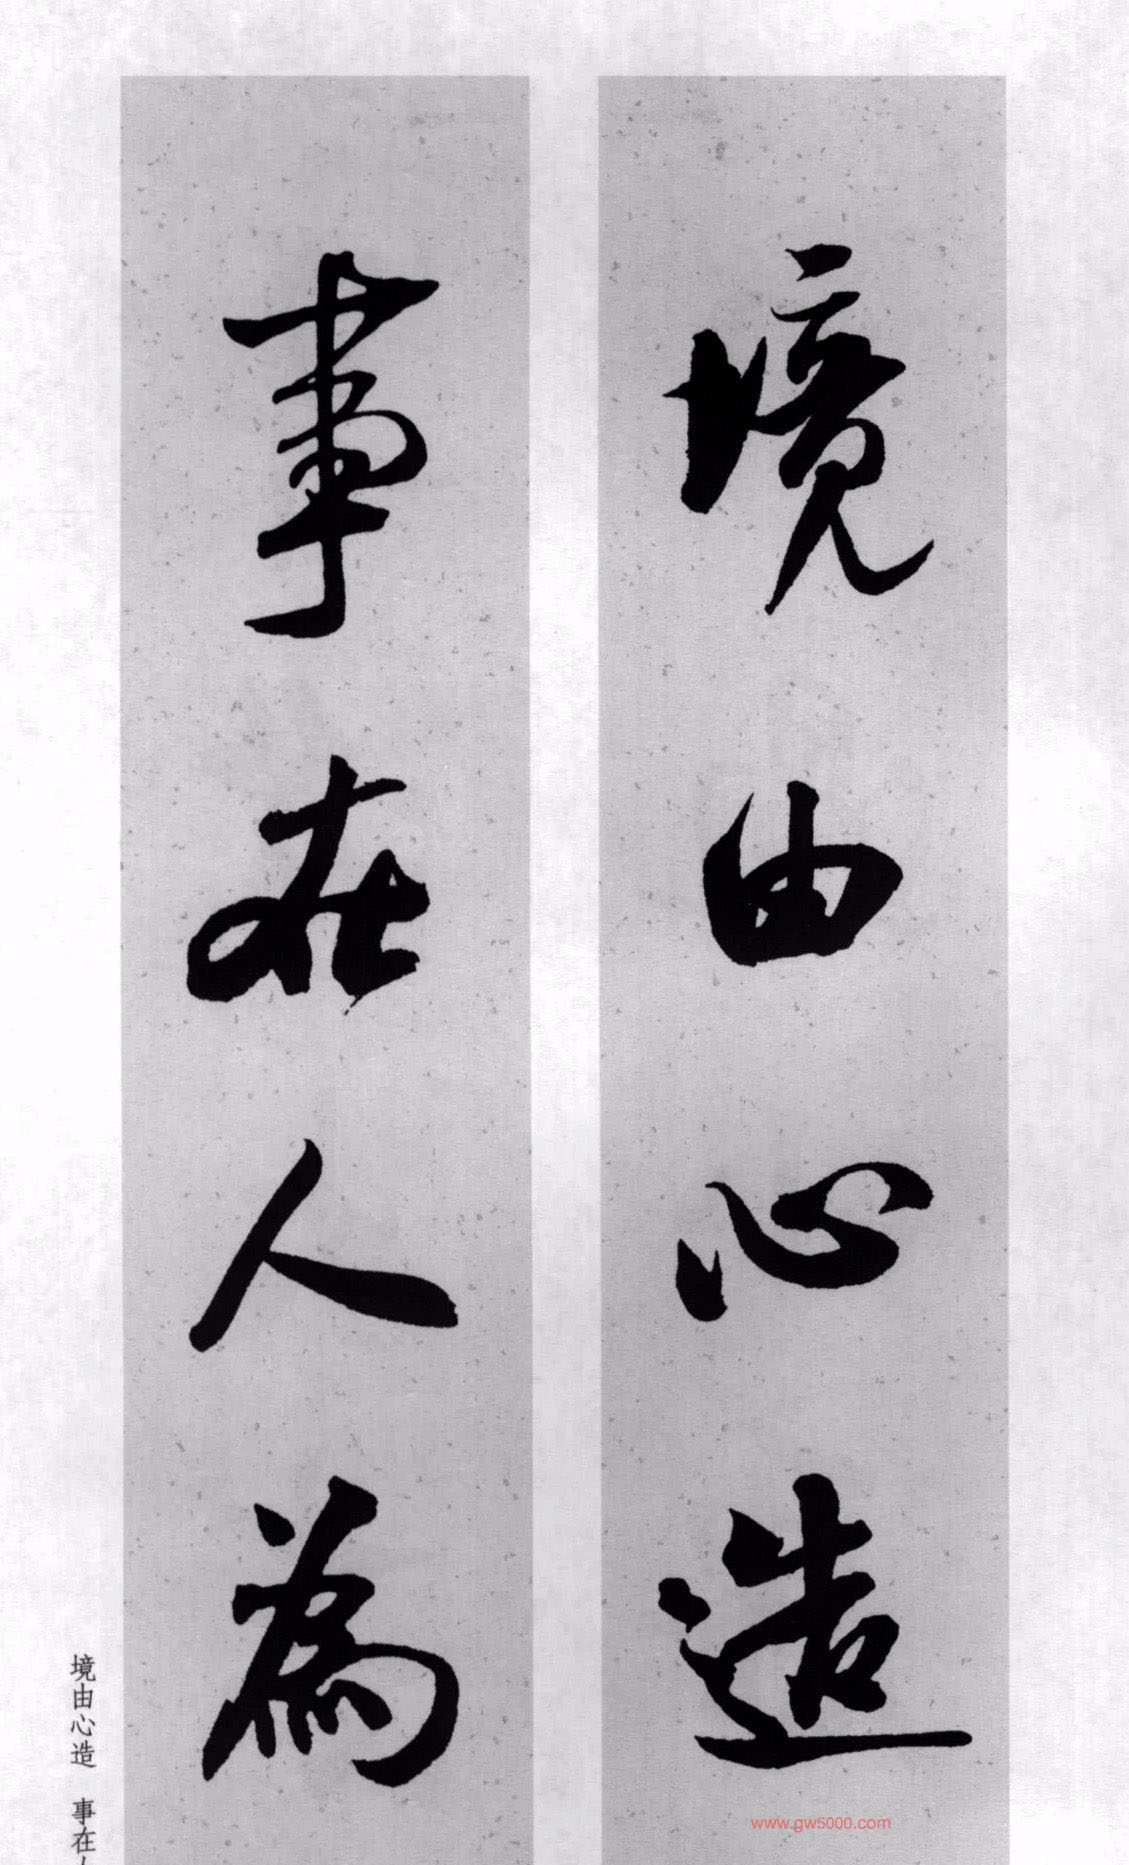 境由心造
事在人為
境由心造 事在
www.gw5000.com